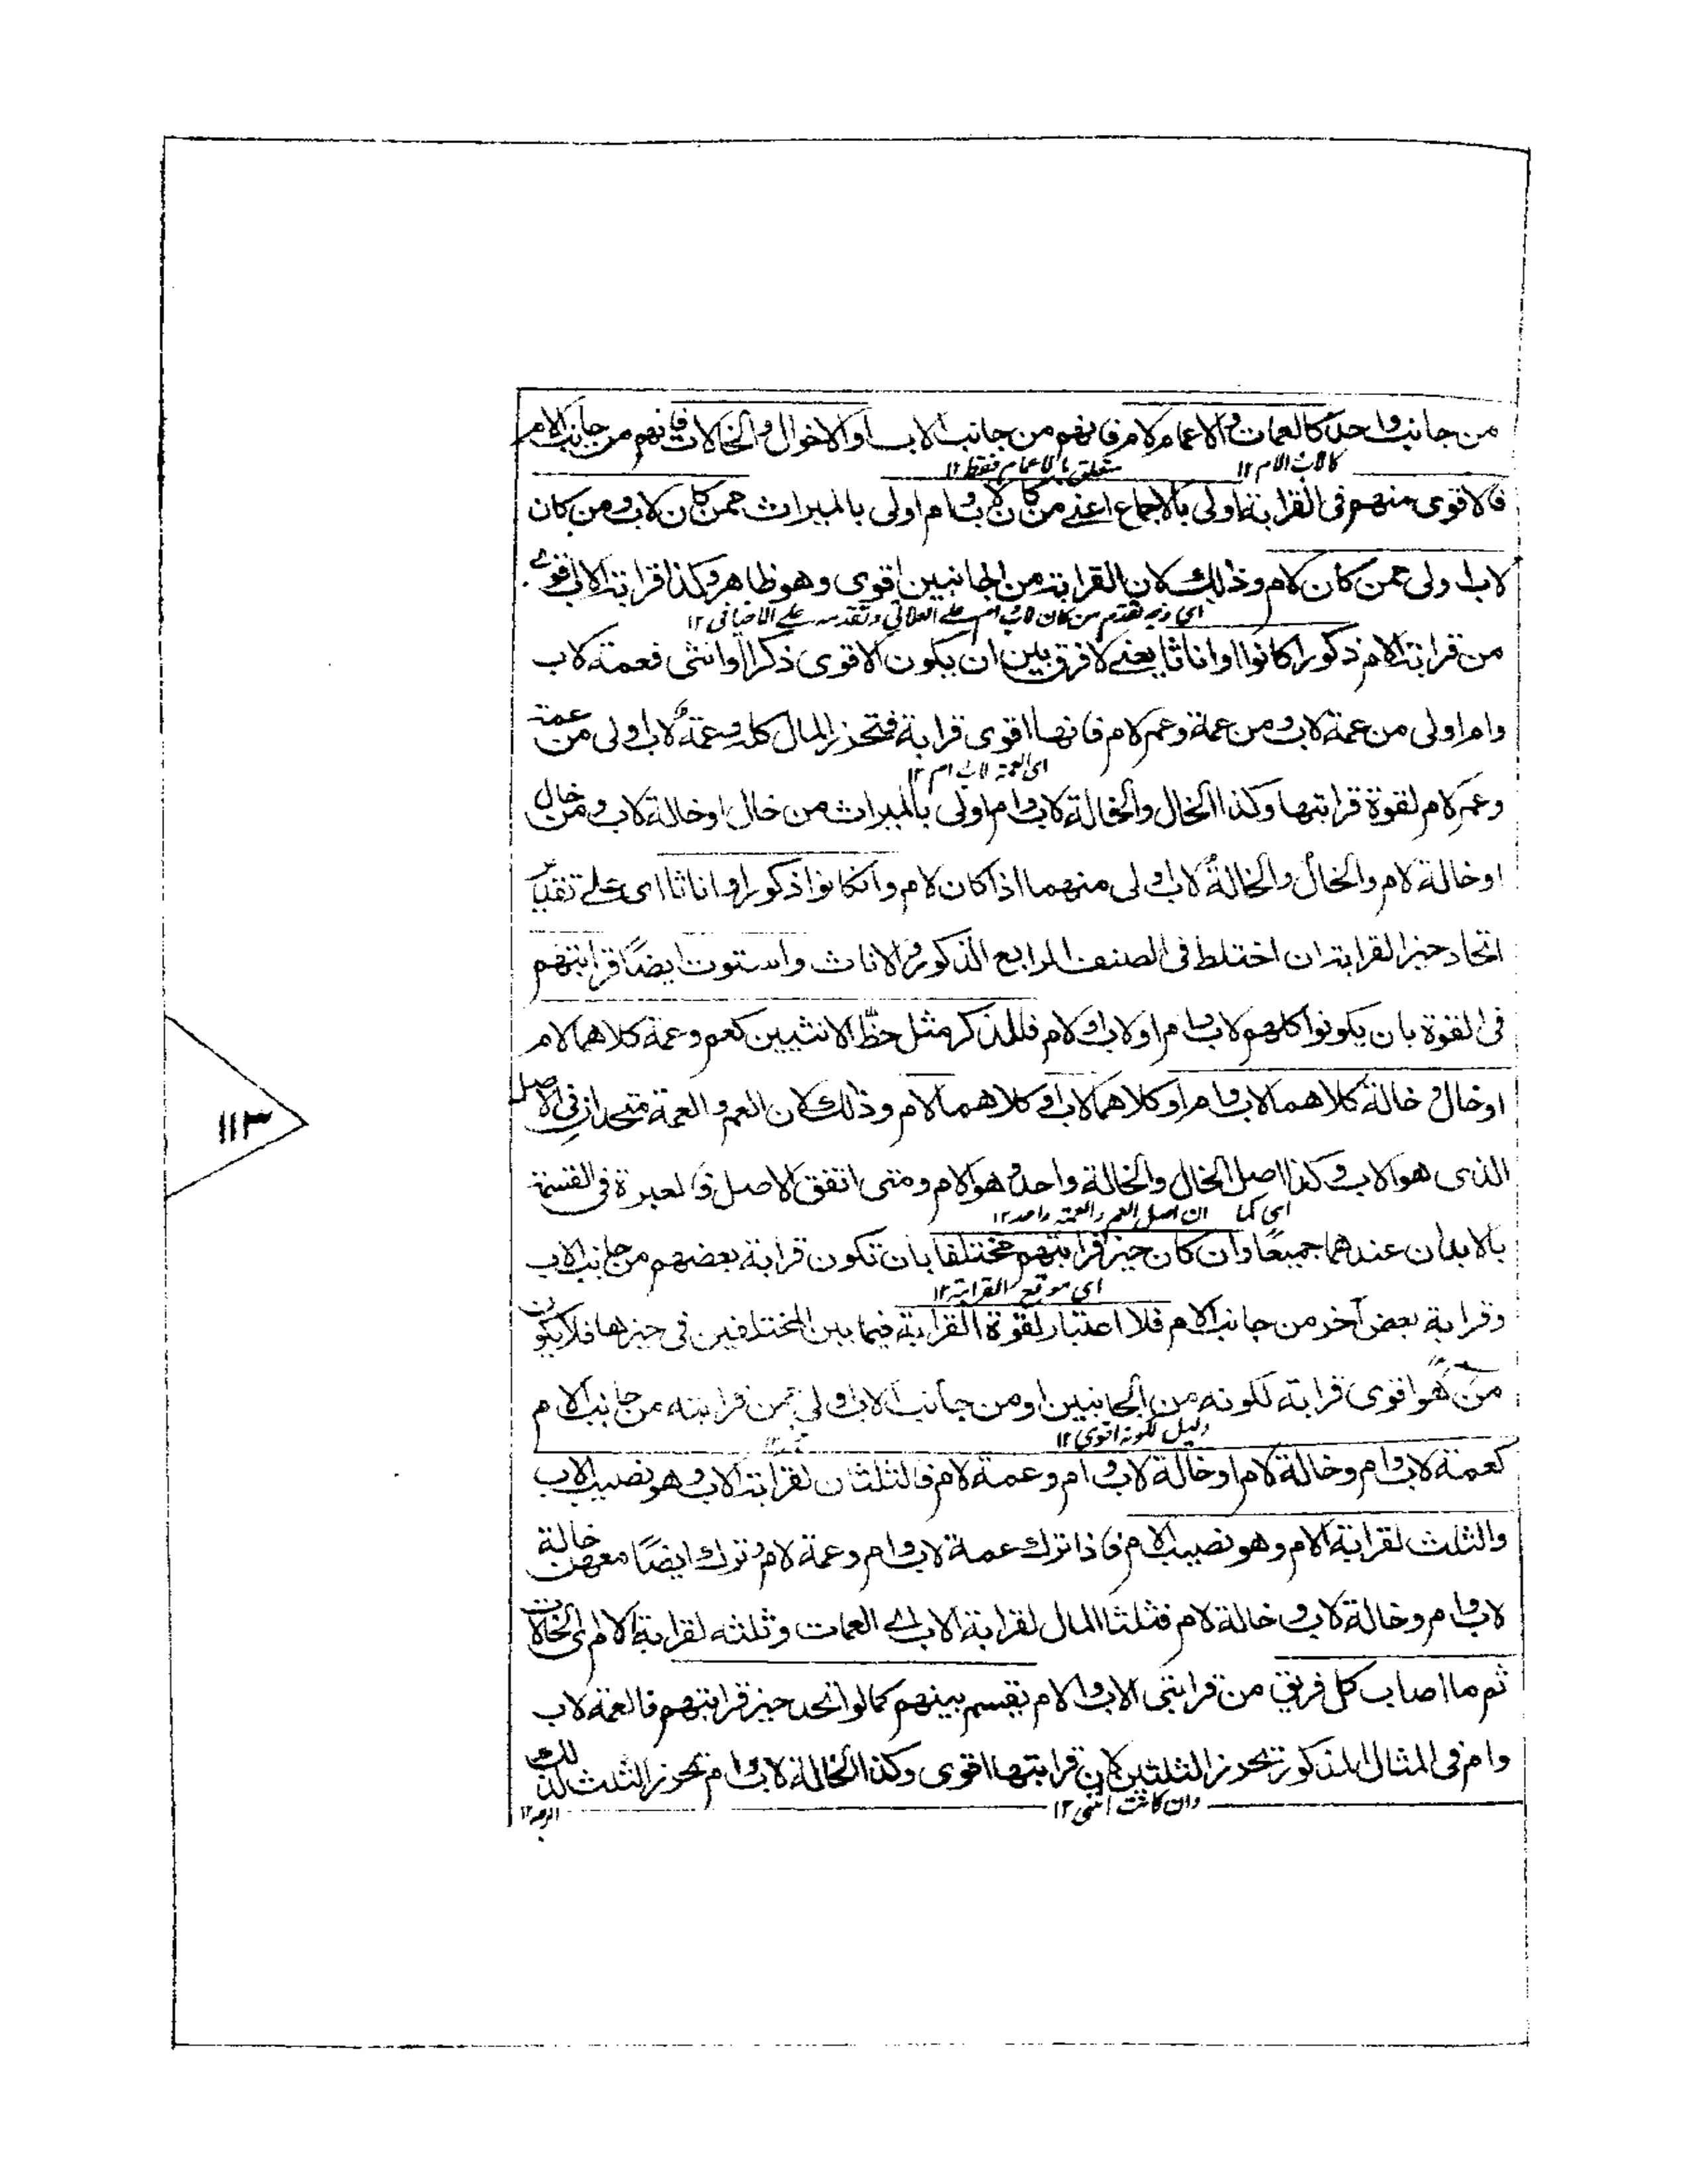 من جانب واحد كالعمات والاعمام لام فانهم من جانب الاب او الاخوال والخالات فانهم من جانب الام
كالاب الام ١٢ متعلق بالاعمام فقط ١٢
فالاقوى منهم فى القرابة اولى بالاجماع اعنے من كان لاب وام اولى بالميراث ممن كان لاب ومن كان
لاب اولى ممن كان لام وذلك لان القرابة من الجانبين اقوى وهو ظاهر وكذا قرابة الاب اقوى
اى وجه تقدم من كان لاب وام علے العلاتى وتقدمه علے الاخيافى ١٢
من قرابة الام ذكورا كانوا او اناثا يعنے لا فرق بين ان يكون الاقوى ذكرا او انثى فعمة لاب
وام اولى من عمة لاب ومن عمة وعم لام فانها اقوى قرابة فتحرز المال كله وعمة لاب اولى من عمة
اى العمة لاب ام ١٢
وعم لام لقوة قرابتها وكذا الخال والخالة لاب وام اولى بالميراث من خال او خالة لاب ومن خال
او خالة لام والخال والخالة لاب اولى منهما اذا كان لام وان كانوا ذكورا واناثا اى علے تقدير
اتحاد حيز القرابة ان اختلط فى الصنف الرابع الذكور والاناث واستوت ايضًا قرابتهم
فى القوة بان يكونوا كلهم لاب وام او لاب او لام فللذكر مثل حظّ الانثيين كعم وعمة كلاهما لام
او خال وخالة كلاهما لاب وام او كلاهما لاب او كلاهما لام وذلك لان العم والعمة متحدان فى الاصل
الذى هو الاب وكذا اصل الخال والخالة واحد وهو الام ومتى اتفق الاصل فالعبرة فى القسمة
اى كما ان اصل العم والعمة واحد ١٢
بالابدان عندهما جميعًا وان كان حيز قرابتهم مختلفا بان تكون قرابة بعضهم من جانب الاب
اى موقع القرابة ١٢
وقرابة بعض آخر من جانب الام فلا اعتبار لقوة القرابة فيما بين المختلفين فى حيزها فلا يكون
من هو اقوى قرابة لكونه من الجانبين او من جانب الاب اولى ممن قرابته من جانب الام
دليل لكونه اقوى ١٢
كعمة لاب وام وخالة لام او خالة لاب وام وعمة لام فالثلثان لقرابة الاب وهو نصيب الاب
والثلث لقرابة الام وهو نصيب الام فاذا ترك عمة لاب وام وعمة لام وترك ايضًا معهن خالة
لاب وام وخالة لاب وخالة لام فثلثا المال لقرابة الاب اے العمات وثلثه لقرابة الام اى الخالات
ثم ما اصاب كل فريق من قرابتى الاب والام يقسم بينهم كما لو اتحد حيز قرابتهم فالعمة لاب
وام فى المثال المذكور تحرز الثلثين لان قرابتها اقوى وكذا الخالة لاب وام تحرز الثلث لذلك
وان كانت انثى ١٢ الوجه ١٢
١١٣